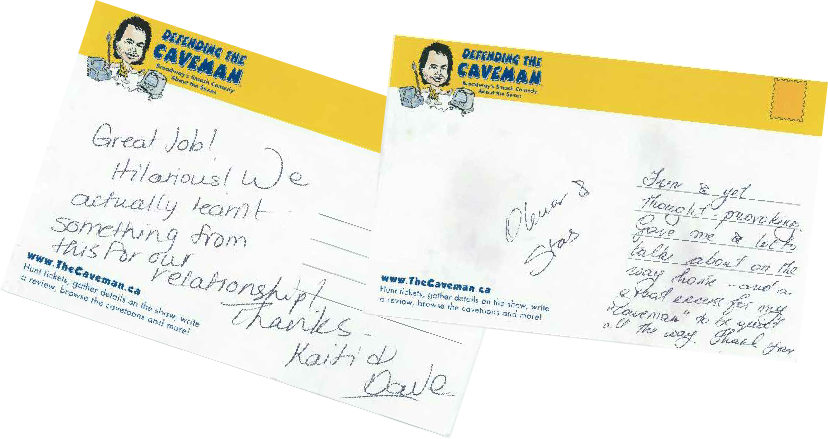 DEFENDING THE
CAVEMAN
Broadway's Smash Comedy
About the Sexes!
Great Job!
Hilarious! We
actually learnt
something from
this for our
relationship!
Thanks-
Kaiti &
Dave
www.TheCaveman.ca
Hunt tickets, gather details on the show, write
a review, browse the cavetoons and more!
DEFENDING THE
CAVEMAN
Broadway's Smash Comedy
About the Sexes!
&
Stas
www.TheCaveman.ca
Hunt tickets, gather details on the show, write
a review, browse the cavetoons and more!
Fun & yet
thought-provoking.
Gave me a lot to
talk about on the
way home - and a
good excuse for my
"Caveman" to be quiet
all the way. Thank you